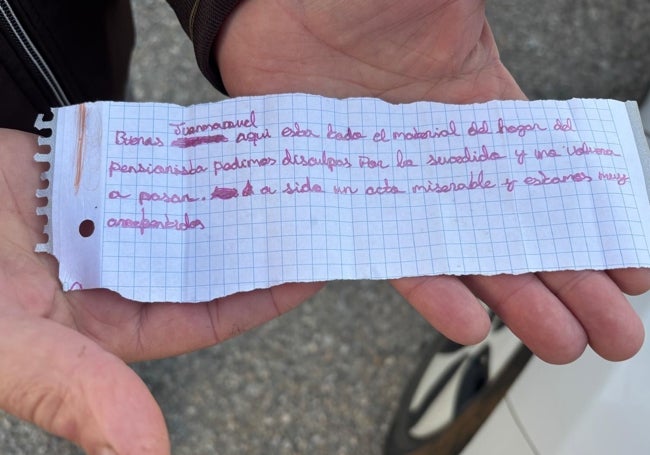 Buenas Juanmanuel aqui esta toda el material del hogar del
pensianista padimos disculpas por la sucedido y no volvera
a pasar. a sido un acto miserable y estamos muy
arrepentidos